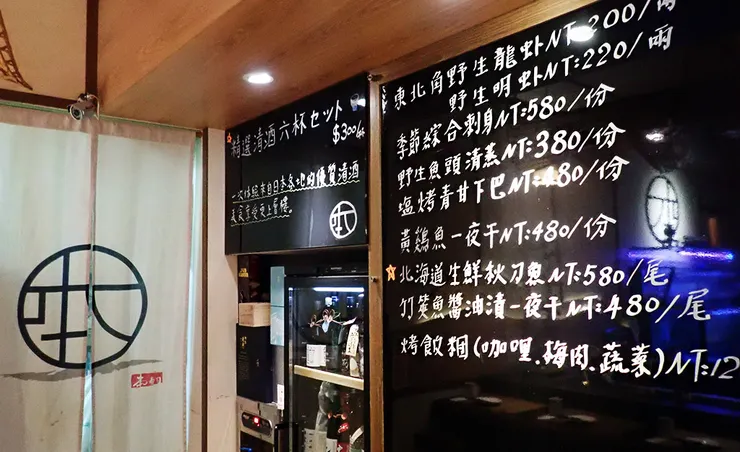 精選清酒六杯セット
$300/組
一次体驗來自日本各地的優質清酒
美食享受更上層樓。
東北角野生龍蝦NT:200/兩
野生明蝦NT:220/兩
季節綜合刺身NT:580/份
野生魚頭清蒸NT:380/份
塩烤青甘下巴NT:480/份
黃鷄魚一夜干NT:480/份
北海道生鮮秋刀魚NT:580/尾
竹筴魚醬油漬一夜干NT:480/尾
烤飯糰(咖哩.梅肉.蔬菜)NT:12